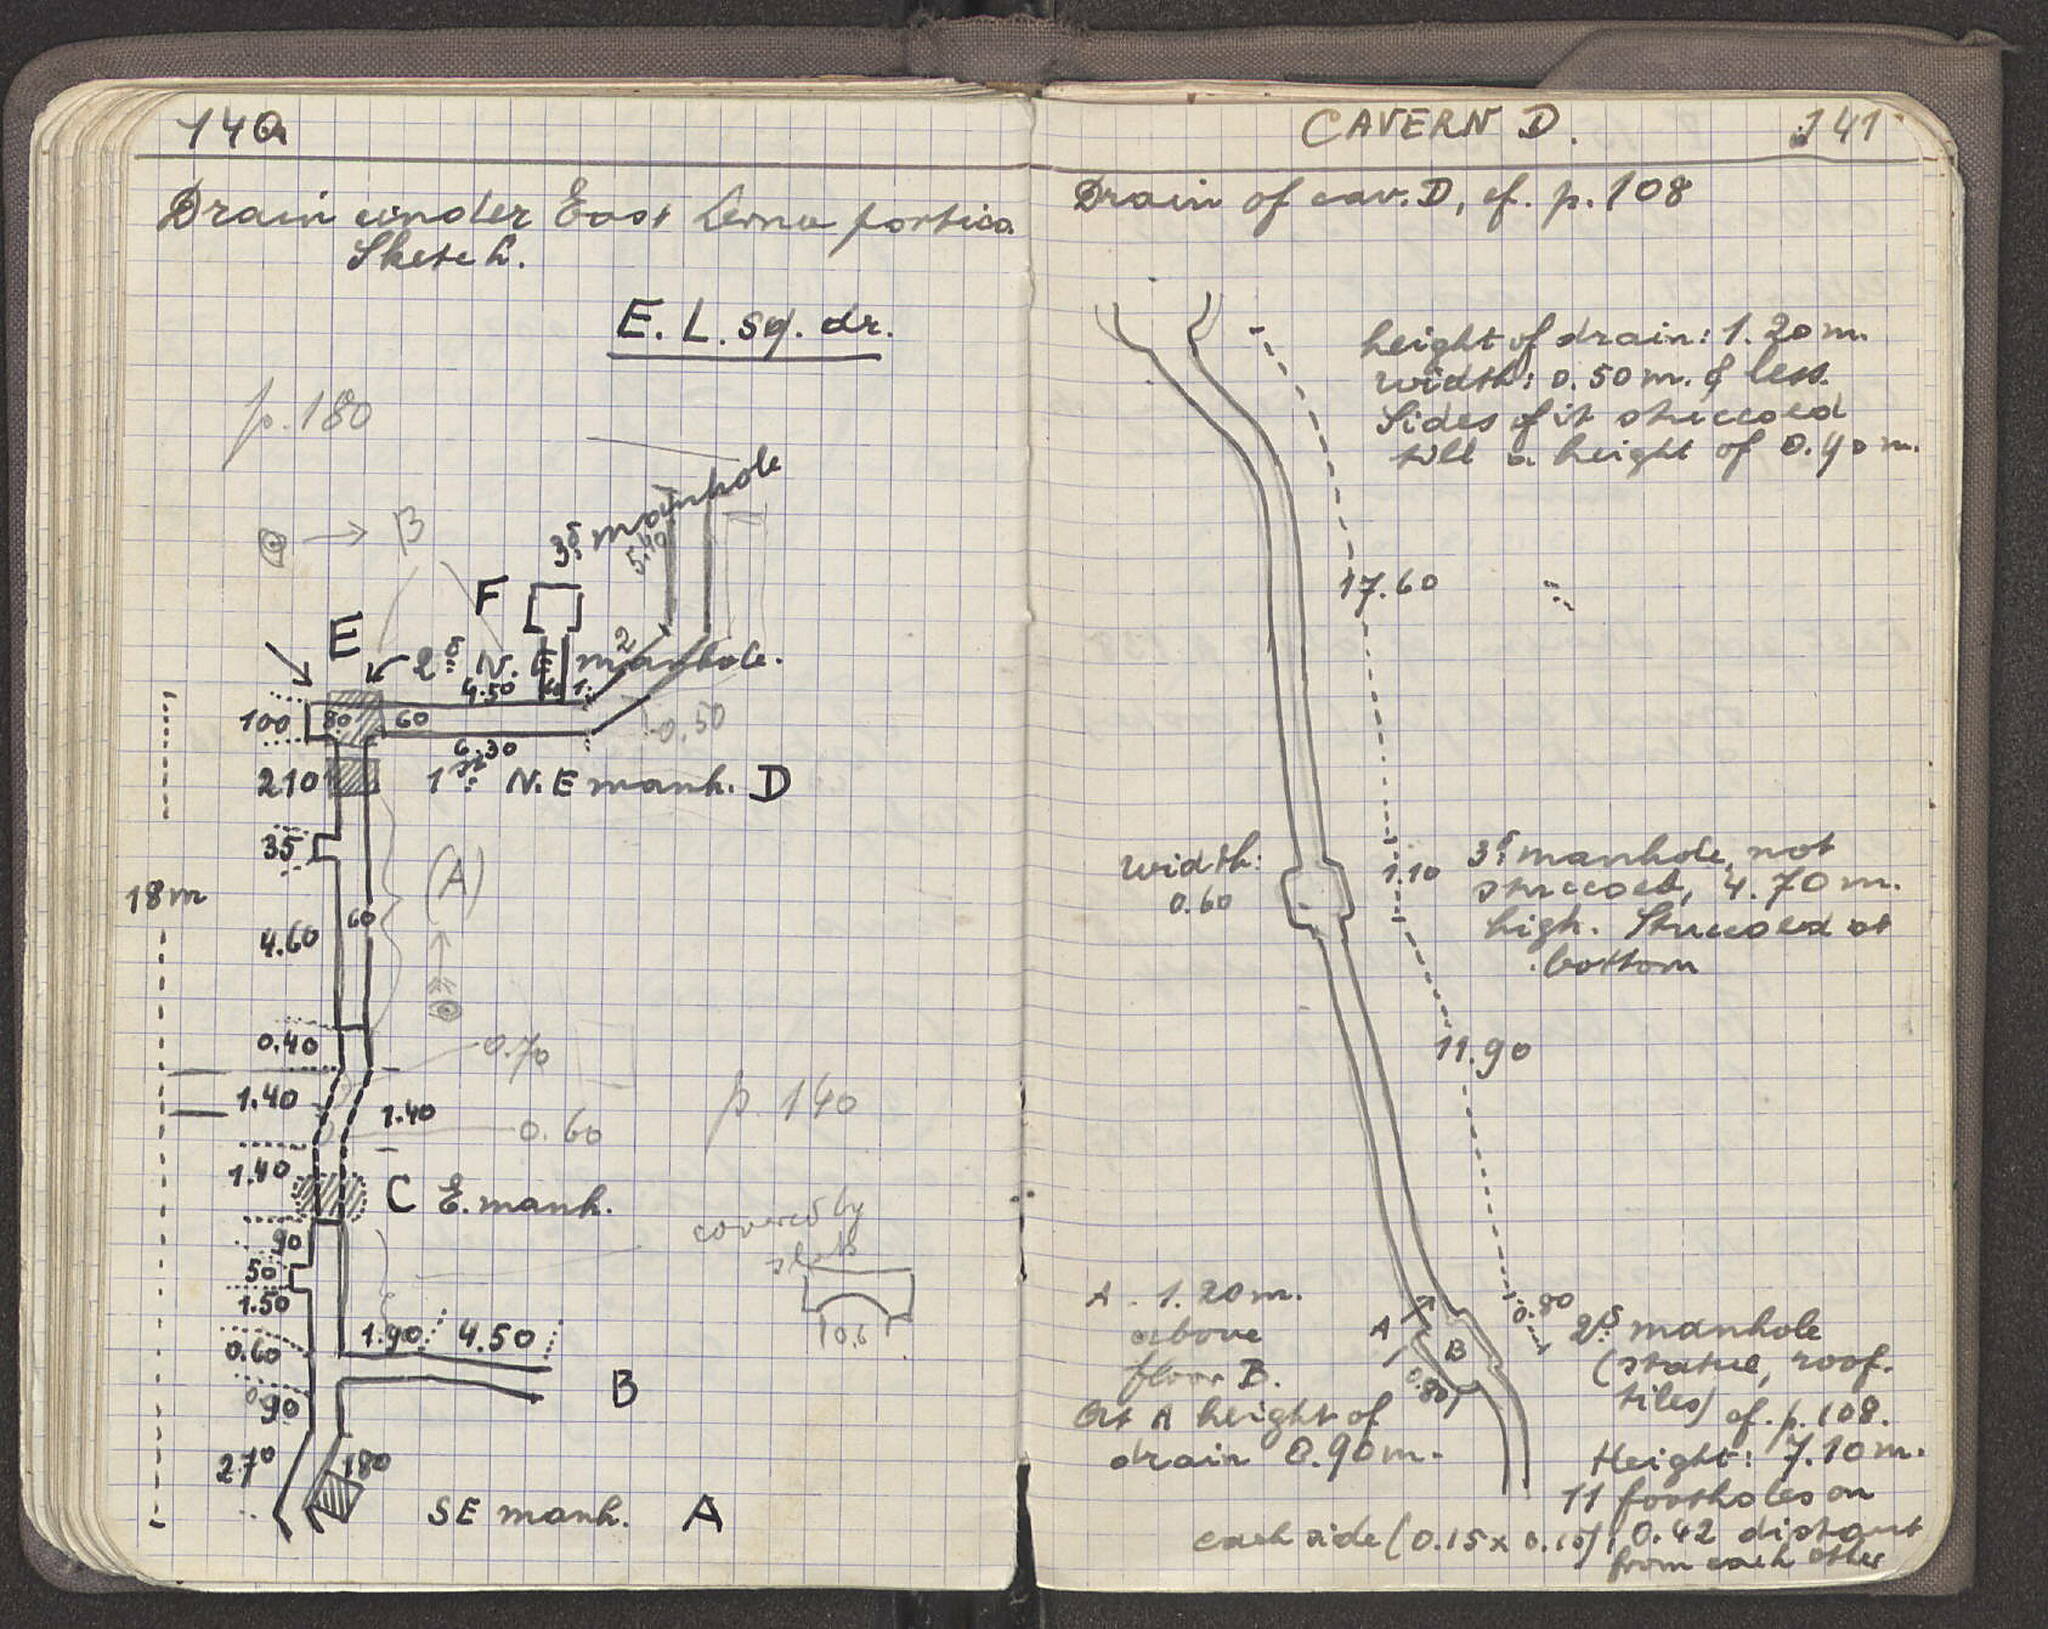 140
Drain under East Lerna portico
Sketch.
E. L. sq. dr.
p. 180
B
3d manhole
5.40
F
E
2d N. E manhole.
2
4.50
1
100
80
60
0.50
6.30
210
1st N. E manh. D
35
(A)
18m
60
4.60
0.40
0.70
1.40
1.40
p. 140
0.60
1.40
C E. manh.
covered by
slab
90
50
1.50
1.90
4.50
0.6
0.60
B
90
270
180
SE manh. A
CAVERN D. 141
Drain of cav. D, cf. p. 108
height of drain: 1.20 m.
width: 0.50 m. & less.
Sides of it stuccoed
till a height of 0.40 m.
17.60
width:
0.60
1.10
3d manhole, not
stuccoed, 4.70 m.
high. Stuccoed at
bottom
11.90
A - 1.20 m.
above
floor B.
At A height of
drain 0.90 m.
A
B
0.80
0.80
2d manhole
(statue, roof.
tiles) cf. p. 108.
Height: 7.10 m.
11 footholes on
each side (0.15 x 0.15), 0.42 distant
from each other